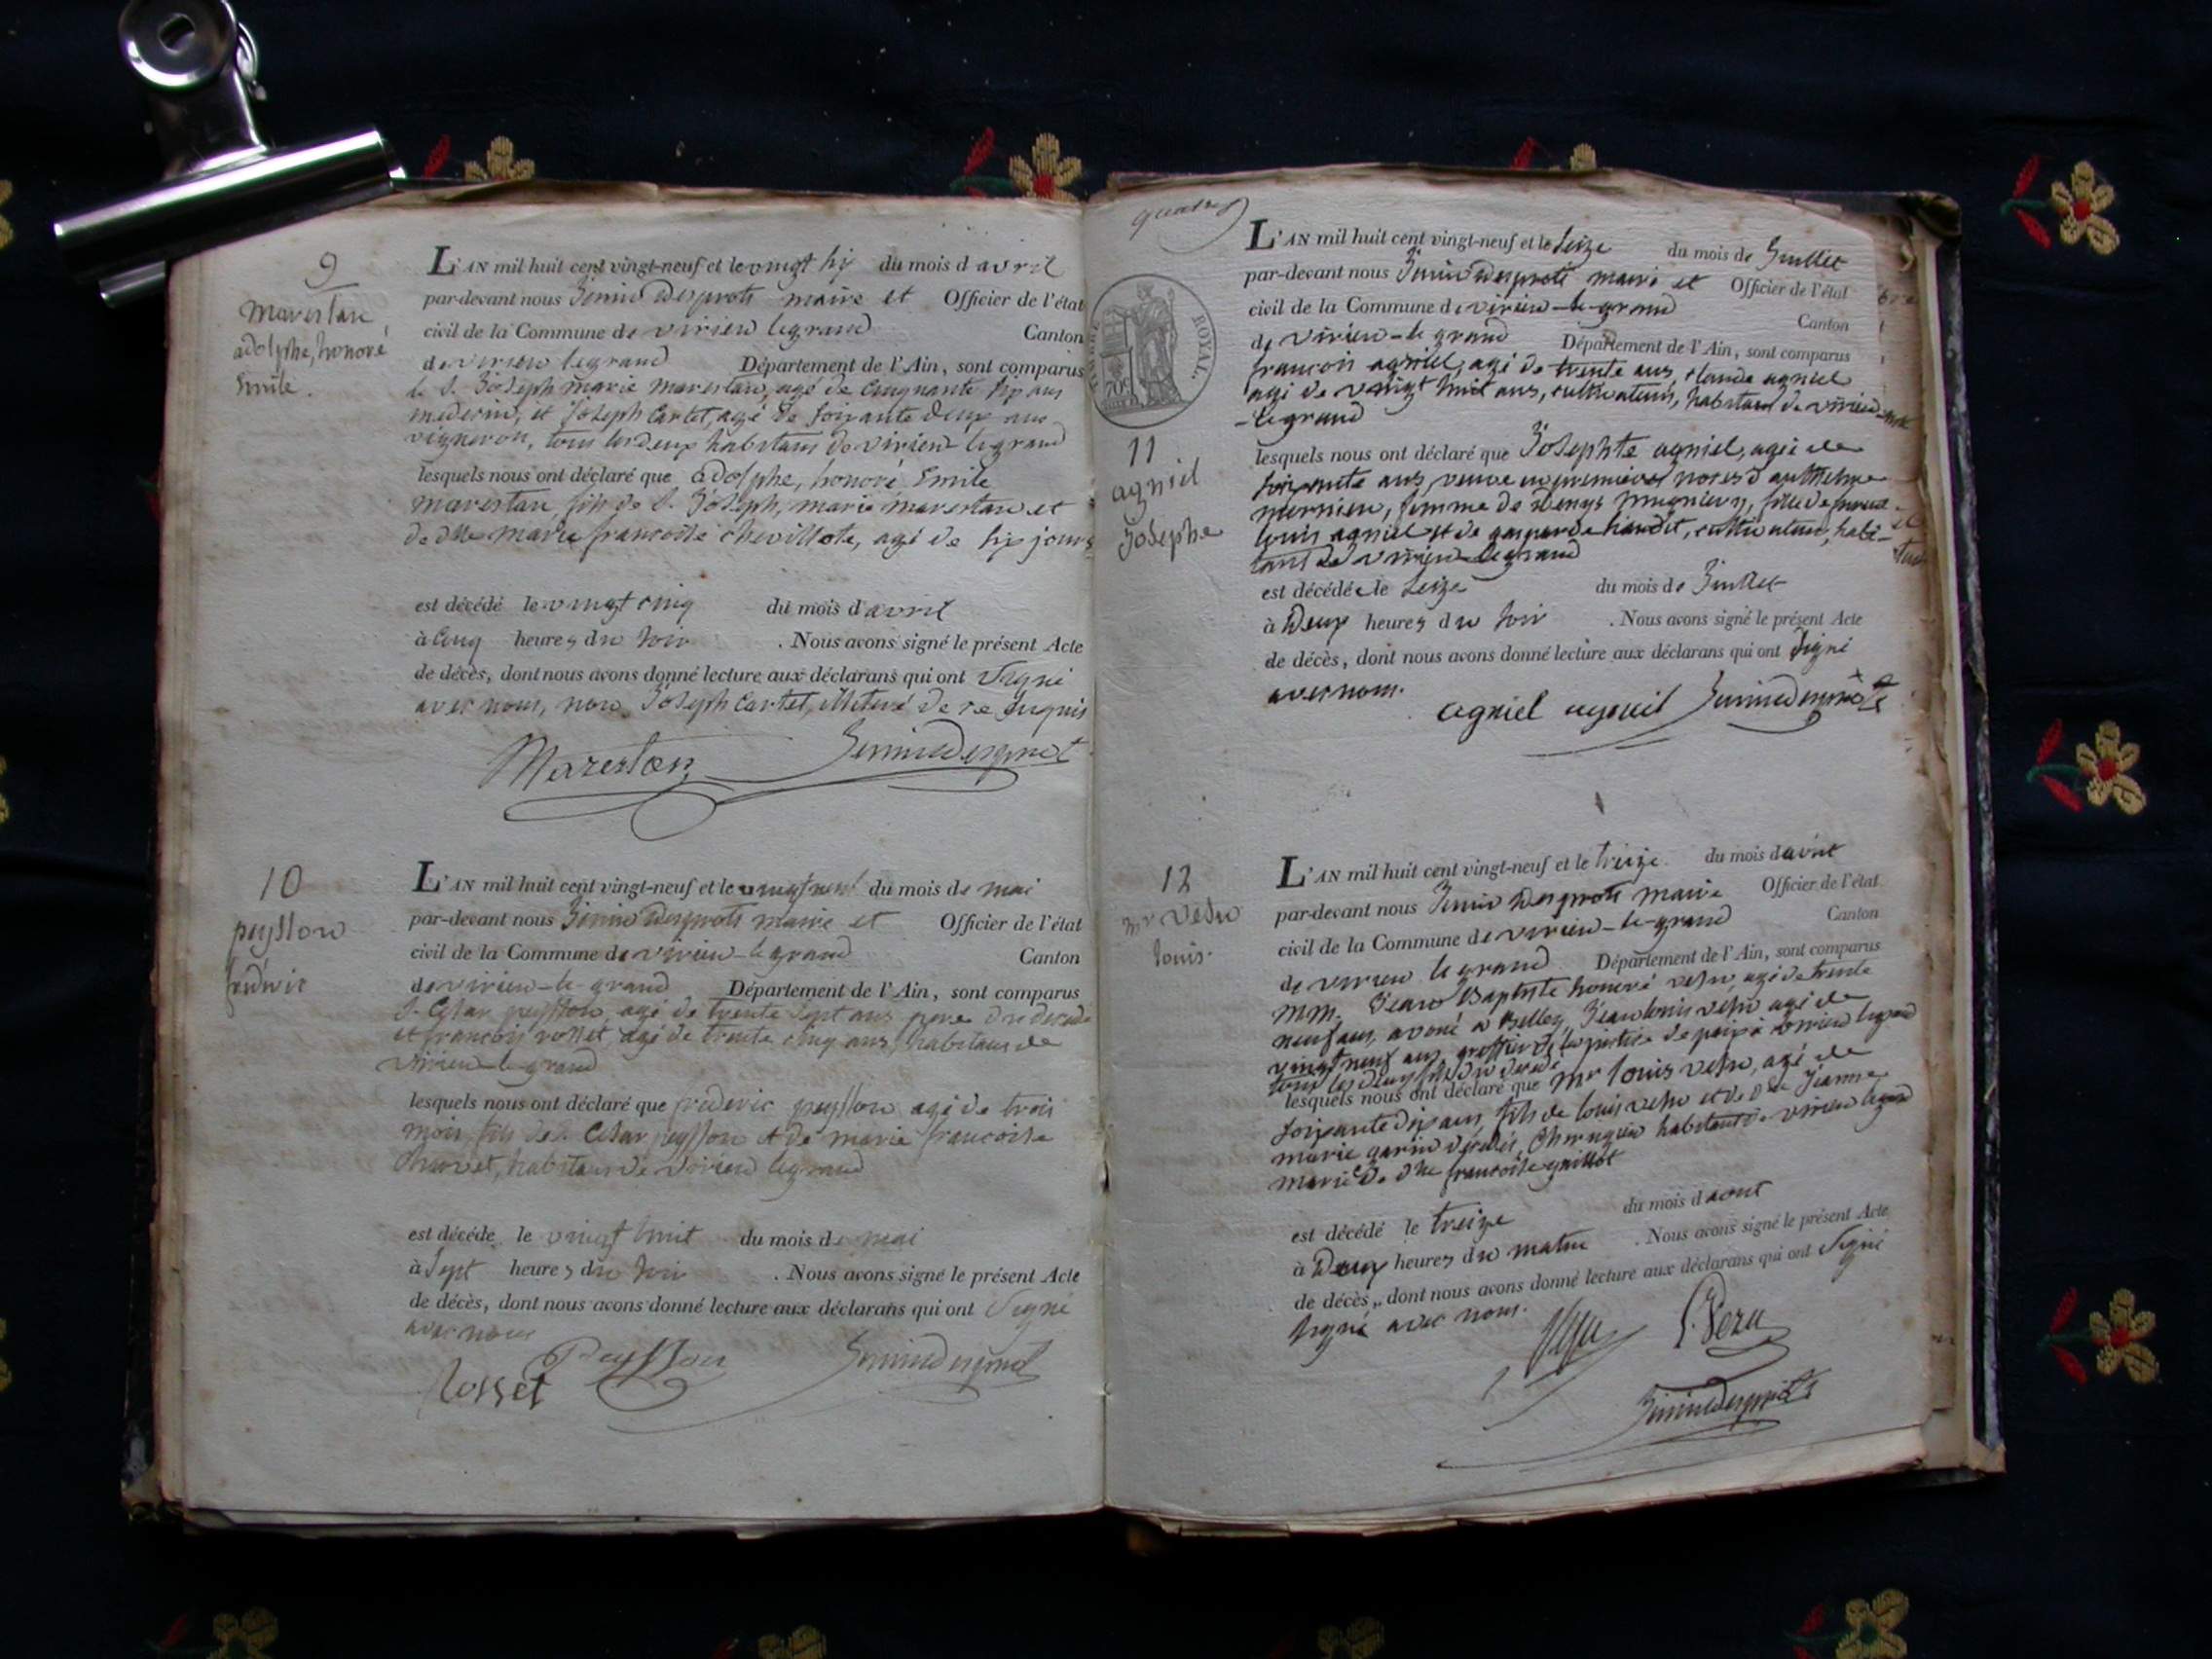 9
marestan
adolphe, honoré
Emile.
L'AN mil huit cent vingt-neuf et le vingt six du mois d avril
par-devant nous Jenin Desprots maire et Officier de l'état
civil de la Commune de virieu legrand Canton
de virieu legrand Département de l'Ain, sont comparus
le S. Joseph marie marestan, agé de cinquante six ans
medecin, et Joseph Cartet, agé de soixante deux ans
vigneron, tous les deux habitans de virieu legrand
lesquels nous ont déclaré que adolphe, honoré Emile
marestan, fils de S. Joseph, marie marestan et
de dlle marie francoise chevillote, agé de six jours
est décédé le vingt cinq du mois d avril
à cinq heures du soir . Nous avons signé le présent Acte
de décès, dont nous avons donné lecture aux déclarans qui ont signé
avec nous, non Joseph Cartet, illiteré de ce enquis
Marestan Jenin Desprot
10
peysson
frederic
L'AN mil huit cent vingt-neuf et le vingt neuf du mois de mai
par-devant nous Jenin Desprots maire et Officier de l'état
civil de la Commune de virieu-le grand Canton
de virieu-le-grand Département de l'Ain, sont comparus
S. César peysson, agé de trente sept ans pere du décédé
et francois rosset agé de trente cinq ans, habitans de
virieu-le-grand
lesquels nous ont déclaré que frederic peysson agé de trois
mois, fils de S. César peysson et de marie francoise
Charvet, habitans de virieu legrand
est décédé le vingt huit du mois de mai
à sept heures du soir . Nous avons signé le présent Acte
de décès, dont nous avons donné lecture aux déclarans qui ont signé
avec nous
Rosset Peysson Jenin Desprot
quatre
TIMBRE ROYAL.
70c
11
agniel
Josephe
L'AN mil huit cent vingt-neuf et le seize du mois de Juillet
par-devant nous Jenin Desprots maire et Officier de l'état
civil de la Commune de virieu-le-grand Canton
de virieu-le grand Département de l'Ain, sont comparus
francois agniel, agé de trente ans, claude agniel
agé de vingt huit ans, cultivateurs, habitans de virieu
-legrand
lesquels nous ont déclaré que Josephte agniel, agée de
soixante ans, veuve en premieres noces d'anthelme
mernieu, femme de Denys mugnier, fille de
louis agniel et de gasparde, cultivateurs, habi-
tans de virieu-legrand
est décédée le seize du mois de Juillet
à Deux heures du soir . Nous avons signé le présent Acte
de décès, dont nous avons donné lecture aux déclarans qui ont signé
avec nous.
agniel agniel Jenin Desprots
12
Mr Vesu
louis.
L'AN mil huit cent vingt-neuf et le treize du mois d aout
par-devant nous Jenin Desprots maire Officier de l'état
civil de la Commune de virieu-le-grand Canton
de virieu legrand Département de l'Ain, sont comparus
MM. Jean Baptiste honoré vesu, agé de trente
neuf ans, avoué a Belley, Jean louis vesu agé de
vingt neuf ans, greffier de la justice de paix a virieu legrand
tous les deux fils du décédé
lesquels nous ont déclaré que Mr louis vesu, agé de
soixante dix ans, fils de louis vesu et de dlle Jeanne
marie garin décédés, Chirurgien habitant de virieu legrand
marié de dlle francoise guillot
est décédé le treize du mois d aout
à Deux heures du matin . Nous avons signé le présent Acte
de décès, dont nous avons donné lecture aux déclarans qui ont signé
signé avec nous.
Vesu L. Vezu
Jenin Desprots